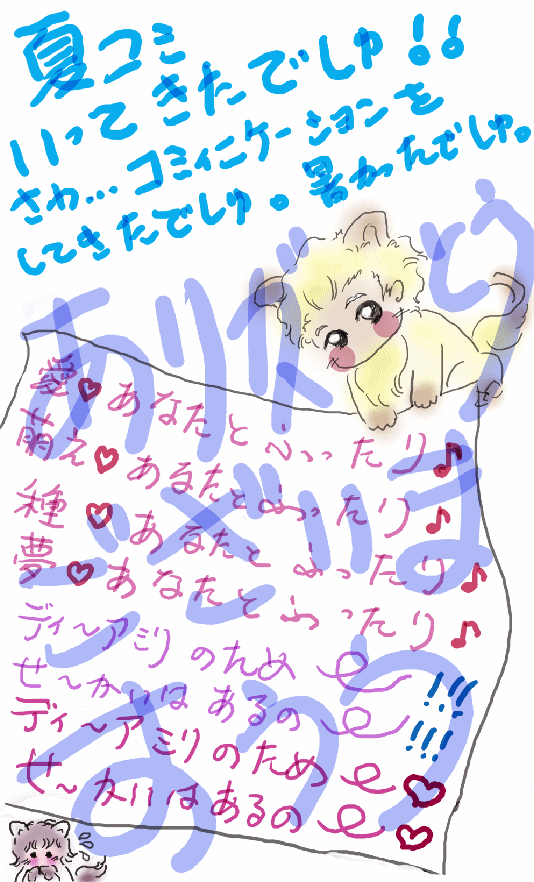 夏コミ
いってきたでしゅ!!
さわ…コミィニケーションを
してきたでしゅ。暑かったでしゅ。
ありがとう
ございま
すっっ
!!!
!!!
愛♥あなたとふったり♪
萌え♥あるたとふったり♪
種♥あなたとふったり♪
夢♥あなたとふったり♪
ディ〜アミリのため
せ〜かいはあるの
ディ〜アミリのため
せ〜かいはあるの♥